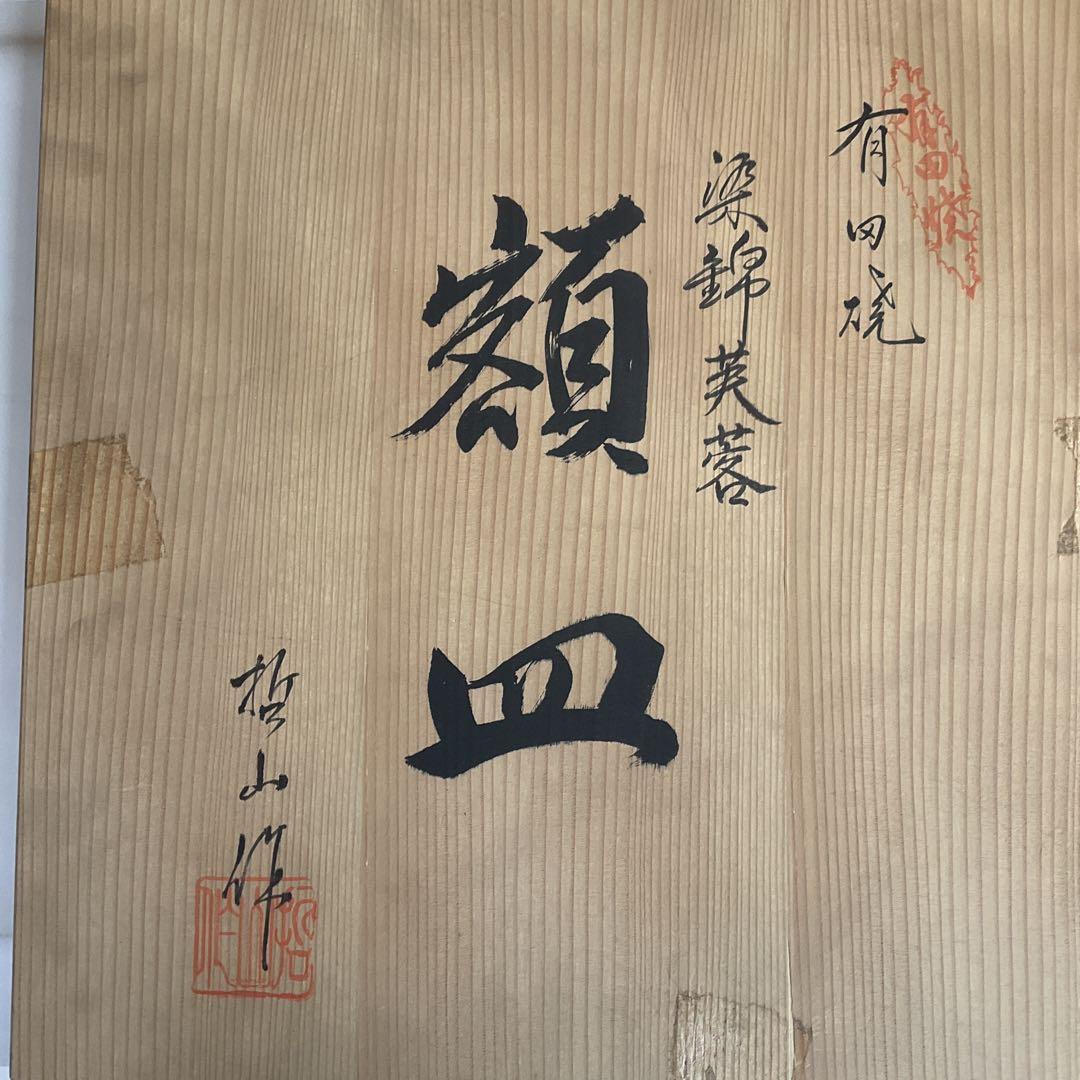 有田焼
有田焼
染錦芙蓉
額皿
哲山作
哲山作